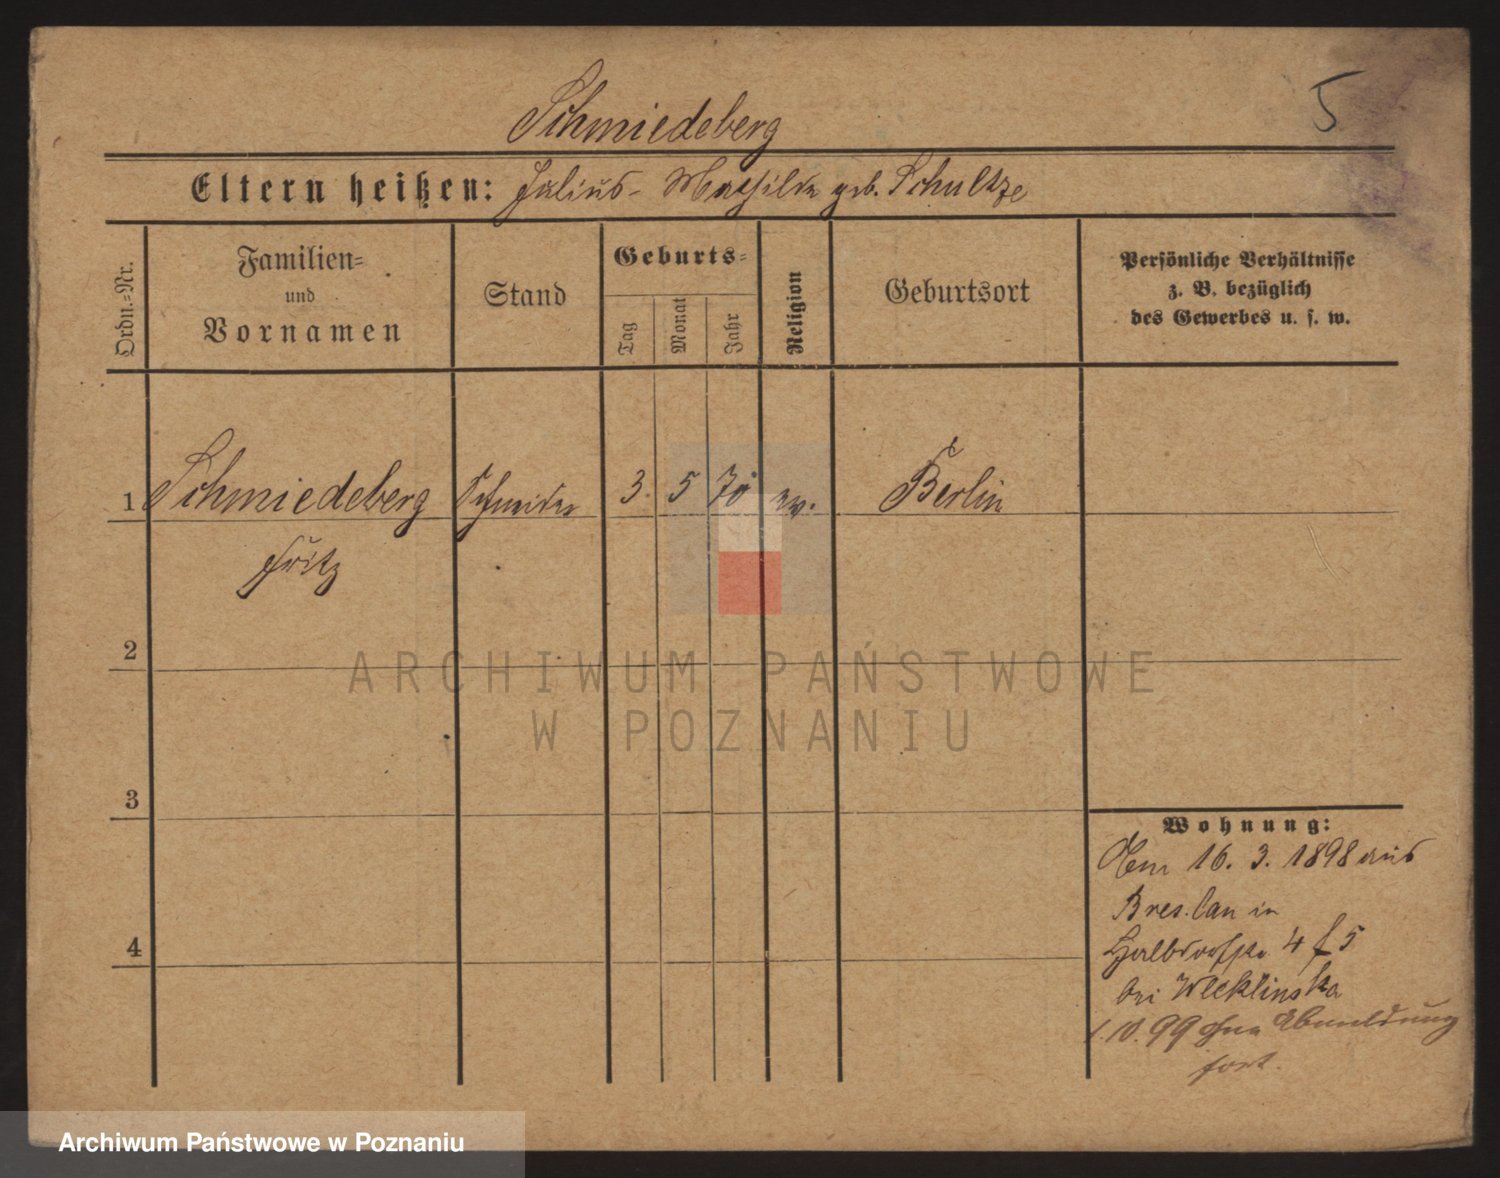 5
Schmiedeberg
Eltern heißen: Julius - Mathilde geb. Schultze
Ordn.=Nr.
Familien=
und
Vornamen
Stand
Geburts=
Tag
Monat
Jahr
Religion
Geburtsort
Persönliche Verhältnisse
z. B. bezüglich
des Gewerbes u. s. w.
1 Schmiedeberg Schneider 3. 5 70 ev. Berlin
Fritz
2
3
4
ARCHIWUM PAŃSTWOWE
W POZNANIU
Wohnung:
16. 3. 1898 aus
Breslau in
4 f 5
bei Wecklinska
99 ohne Abmeldung
fort.
Archiwum Państwowe w Poznaniu